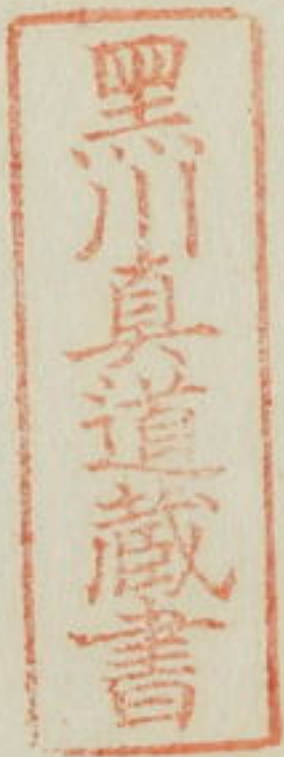 黒川真道蔵書